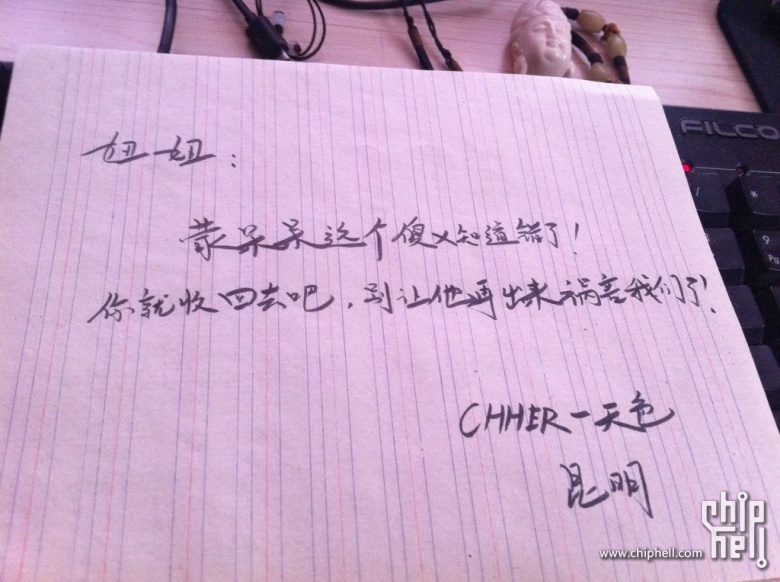 妞妞：
蒙呆呆这个傻乂知道错了！
你就收回去吧，别让他再出来祸害我们了！
CHHER-天色
昆明
FILCO
/
*
9
Pg
chip
hell
www.chiphell.com